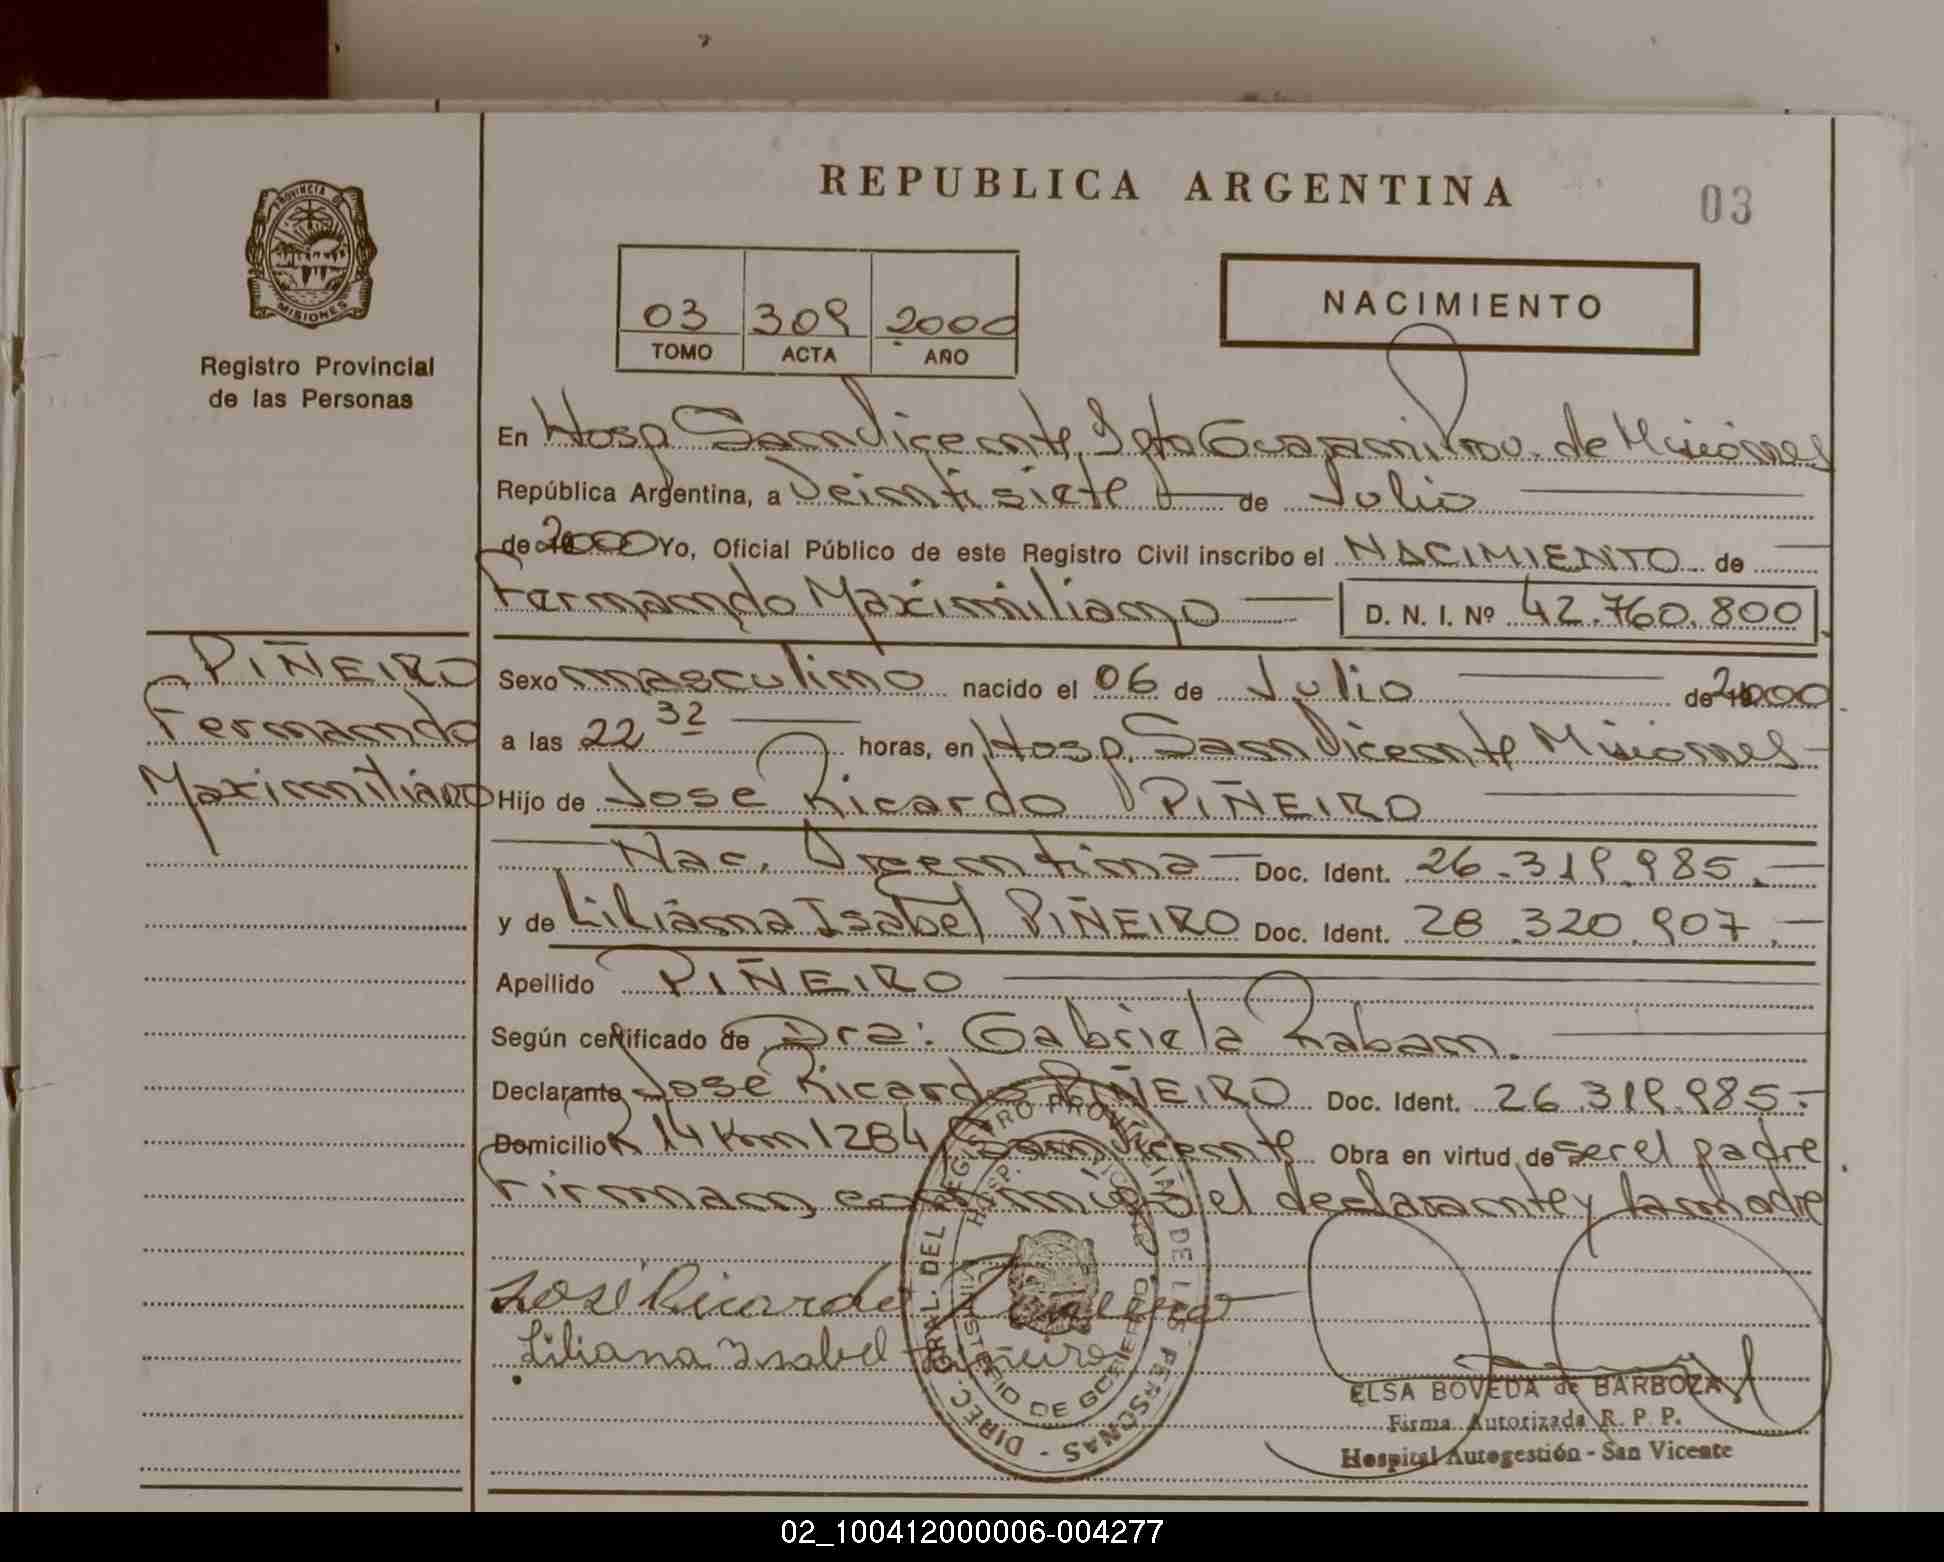 REPUBLICA ARGENTINA
03
PROVINCIA DE
MISIONES
Registro Provincial
de las Personas
03 309 2000
TOMO ACTA AÑO
NACIMIENTO
En Hosp San Vicente, Dpto Guaraní Prov. de Misiones
República Argentina, a Veintisiete de Julio
de 2000 Yo, Oficial Público de este Registro Civil inscribo el NACIMIENTO de
Fernando Maximiliano D. N. I. Nº 42.760.800
PIÑEIRO
Fernando
Maximiliano
Sexo masculino nacido el 06 de Julio de 2000
a las 22 32 horas, en Hosp. San Vicente Misiones
Hijo de José Ricardo PIÑEIRO
Nac. Argentina Doc. Ident. 26.319.985.
y de Liliana Isabel PIÑEIRO Doc. Ident. 28.320.907.
Apellido PIÑEIRO
Según certificado de Dra: Gabriela Raban.
Declarante José Ricardo PIÑEIRO Doc. Ident. 26.319.985.-
Domicilio R 14 Km 1284 San Vicente Obra en virtud de ser el padre
Firman conmigo el declarante y la madre
José Ricardo Piñeiro
Liliana Isabel Piñeiro
DIREC. GRAL. DEL REGISTRO PROVINCIAL DE LAS PERSONAS -
HOSP. SAN VICENTE
MINISTERIO DE GOBIERNO
ELSA BOVEDA de BARBOZA
Firma Autorizada R. P. P.
Hospital Autogestión - San Vicente
02_100412000006-004277